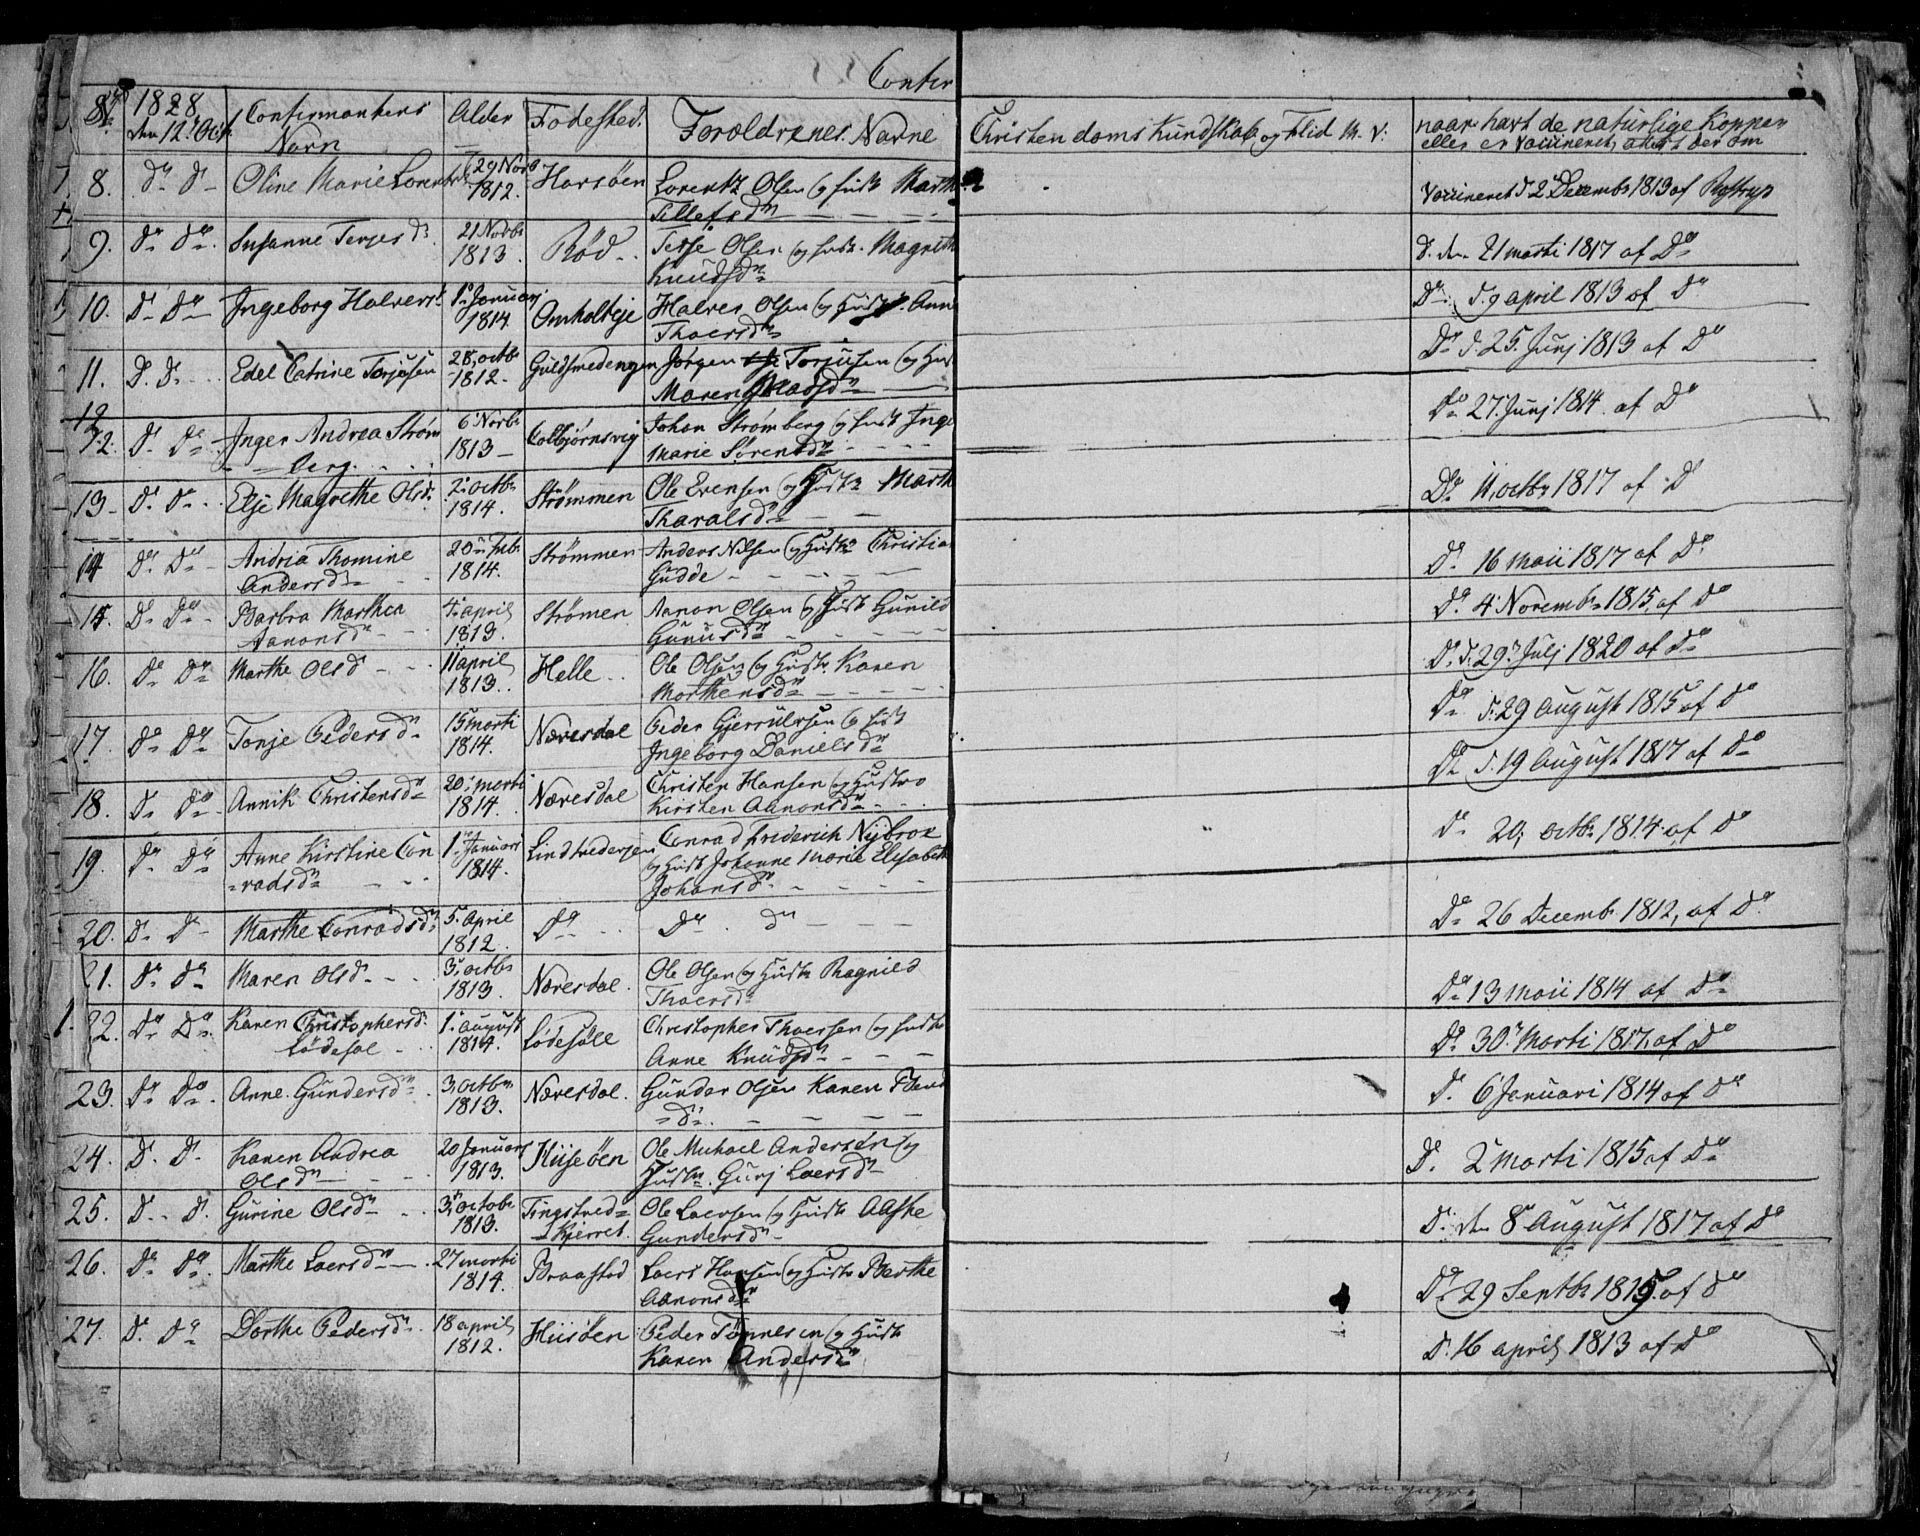 Confir
No 1828 den 12te Octb Confirmantens Navn Alder Fødested. Forældrenes Navne Christendoms Kundskab og Flid M. V. naar havt de naturlige Kopper
eller er Vaccineret, attest der om
8. Do Do Oline Marie Lorentzd 29 Novb 1812. Havsöen Lorentz Olsen og Hust Marth
Tellefsdn Vaccineret d 2 Decembr 1813 af
9. Do Do. Susanne Terjesd 21 Novbr 1813. Röd Terje Olsen og hustr. Magreth
Knudsdn D. den 21 marti 1817 af Do
10. Do Do Ingeborg Halversd 1 Januarj 1814 Omholteje Halver Olsen og Hust. Anne
Thoersdn Do d. 9 april 1813 af Do
11. D. D. Edel Catrine Torjusen 28 octbr 1812. Guldsmedengen Jörgen Torjusen og Hust
Maren Madsdn Do d. 25. Junj 1813 af Do
12
12. D. Do Inger Andrea Ström
berg. 6 Novbr 1813 Colbjörnsvig Johan Strömberg og Hust Inge
Marie Sörensdn Do 27 Junj 1814 af Do
13 D. Do Elje Magrethe Olsd. 2 octbr 1814. Strömmen Ole Evensen og Hustr Marth
Tharalsdn Do 11 octbr 1817 af D
14 Do Do Andria Thomine
Andersdn 20 Feb. 1814. Strömmen Anders Nilsen og Hustr Christia
Gudde Do. 16 Maii 1817 af Do
15. D. Do Barbra Marthea
Aanonsdn 4 april 1813. Strömen Aanon Olsen og Hust Gunild
Gunusdn Do. 4 Novembr 1815 af Do
16. Do Do Marthe Olsd 11 april 1813. Helle Ole Olsen og Hustr Karen
Morthensdn D. d. 29 Julj 1820 af Do
17. Do Do Tonje Pedersdn 15 marti 1814. Næresdal Peder Gjerrulvsen og Hust
Ingeborg Danielsdn Do d. 29 August 1815 af Do
18. D. Do Annik Christensdn 20 marti 1814. Næresdal Christen Hansen og Hustro
Kirsten Aanonsdn Do d. 19 August 1817 af Do
19. Do Do Anne Kirstine Con
radsdn 1 Januari 1814. Lindtvedejen Conrad Friderich Nybroe
og Hust Johanne Marie Elisabeth
Johansdn D. 20 octbr 1814 af Do
20. D. D. Marthe Conradsdn 5 april 1812. Do Do Do Do 26 Decembr 1812, af Do
21. Do Do Maren Olsd 3 octbr 1813. Næresdal. Ole Olsen og Hustr Ragnild
Thoersd Do 13 maii 1814 af Do
22. Do Do Karen Christophersd.
Lödesöl 1 august 1814. Lödesöll Christopher Thoersen og Hustr
Anne Knudsdn Do 30 Marti 1817, af Do
23. Do Do. Anne Gundersdn 3 octbr 1813. Næresdal. Gunder Olsen Karen
D. 6 Januari 1814 af Do
24. D. D. Karen Andrea
Olsdn 20 Januari 1813. Hisöen Ole Michael Andersen og
Hustr. Gurj Laersdn D. 2 marti 1815 af Do
25. D. D. Gurine Olsdn 3 octobr 1813. Tingstved
Kjerret. Ole Laersen og Hustr Aaske
Gundersdn D. den 8 August 1817 af Do
26. Do Do. Marthe Laersdn 27 marti 1814. Braastad Laers Hansen og Hustr Berthe
Aanonsdn Do 29 Septbr 1815 af Do
27. D. Do Dorthe Pedersdn 18 april 1812. Hisöen Peder Tönnesen og Hustr
Karen Andersdn D. 16 april 1813 af Do